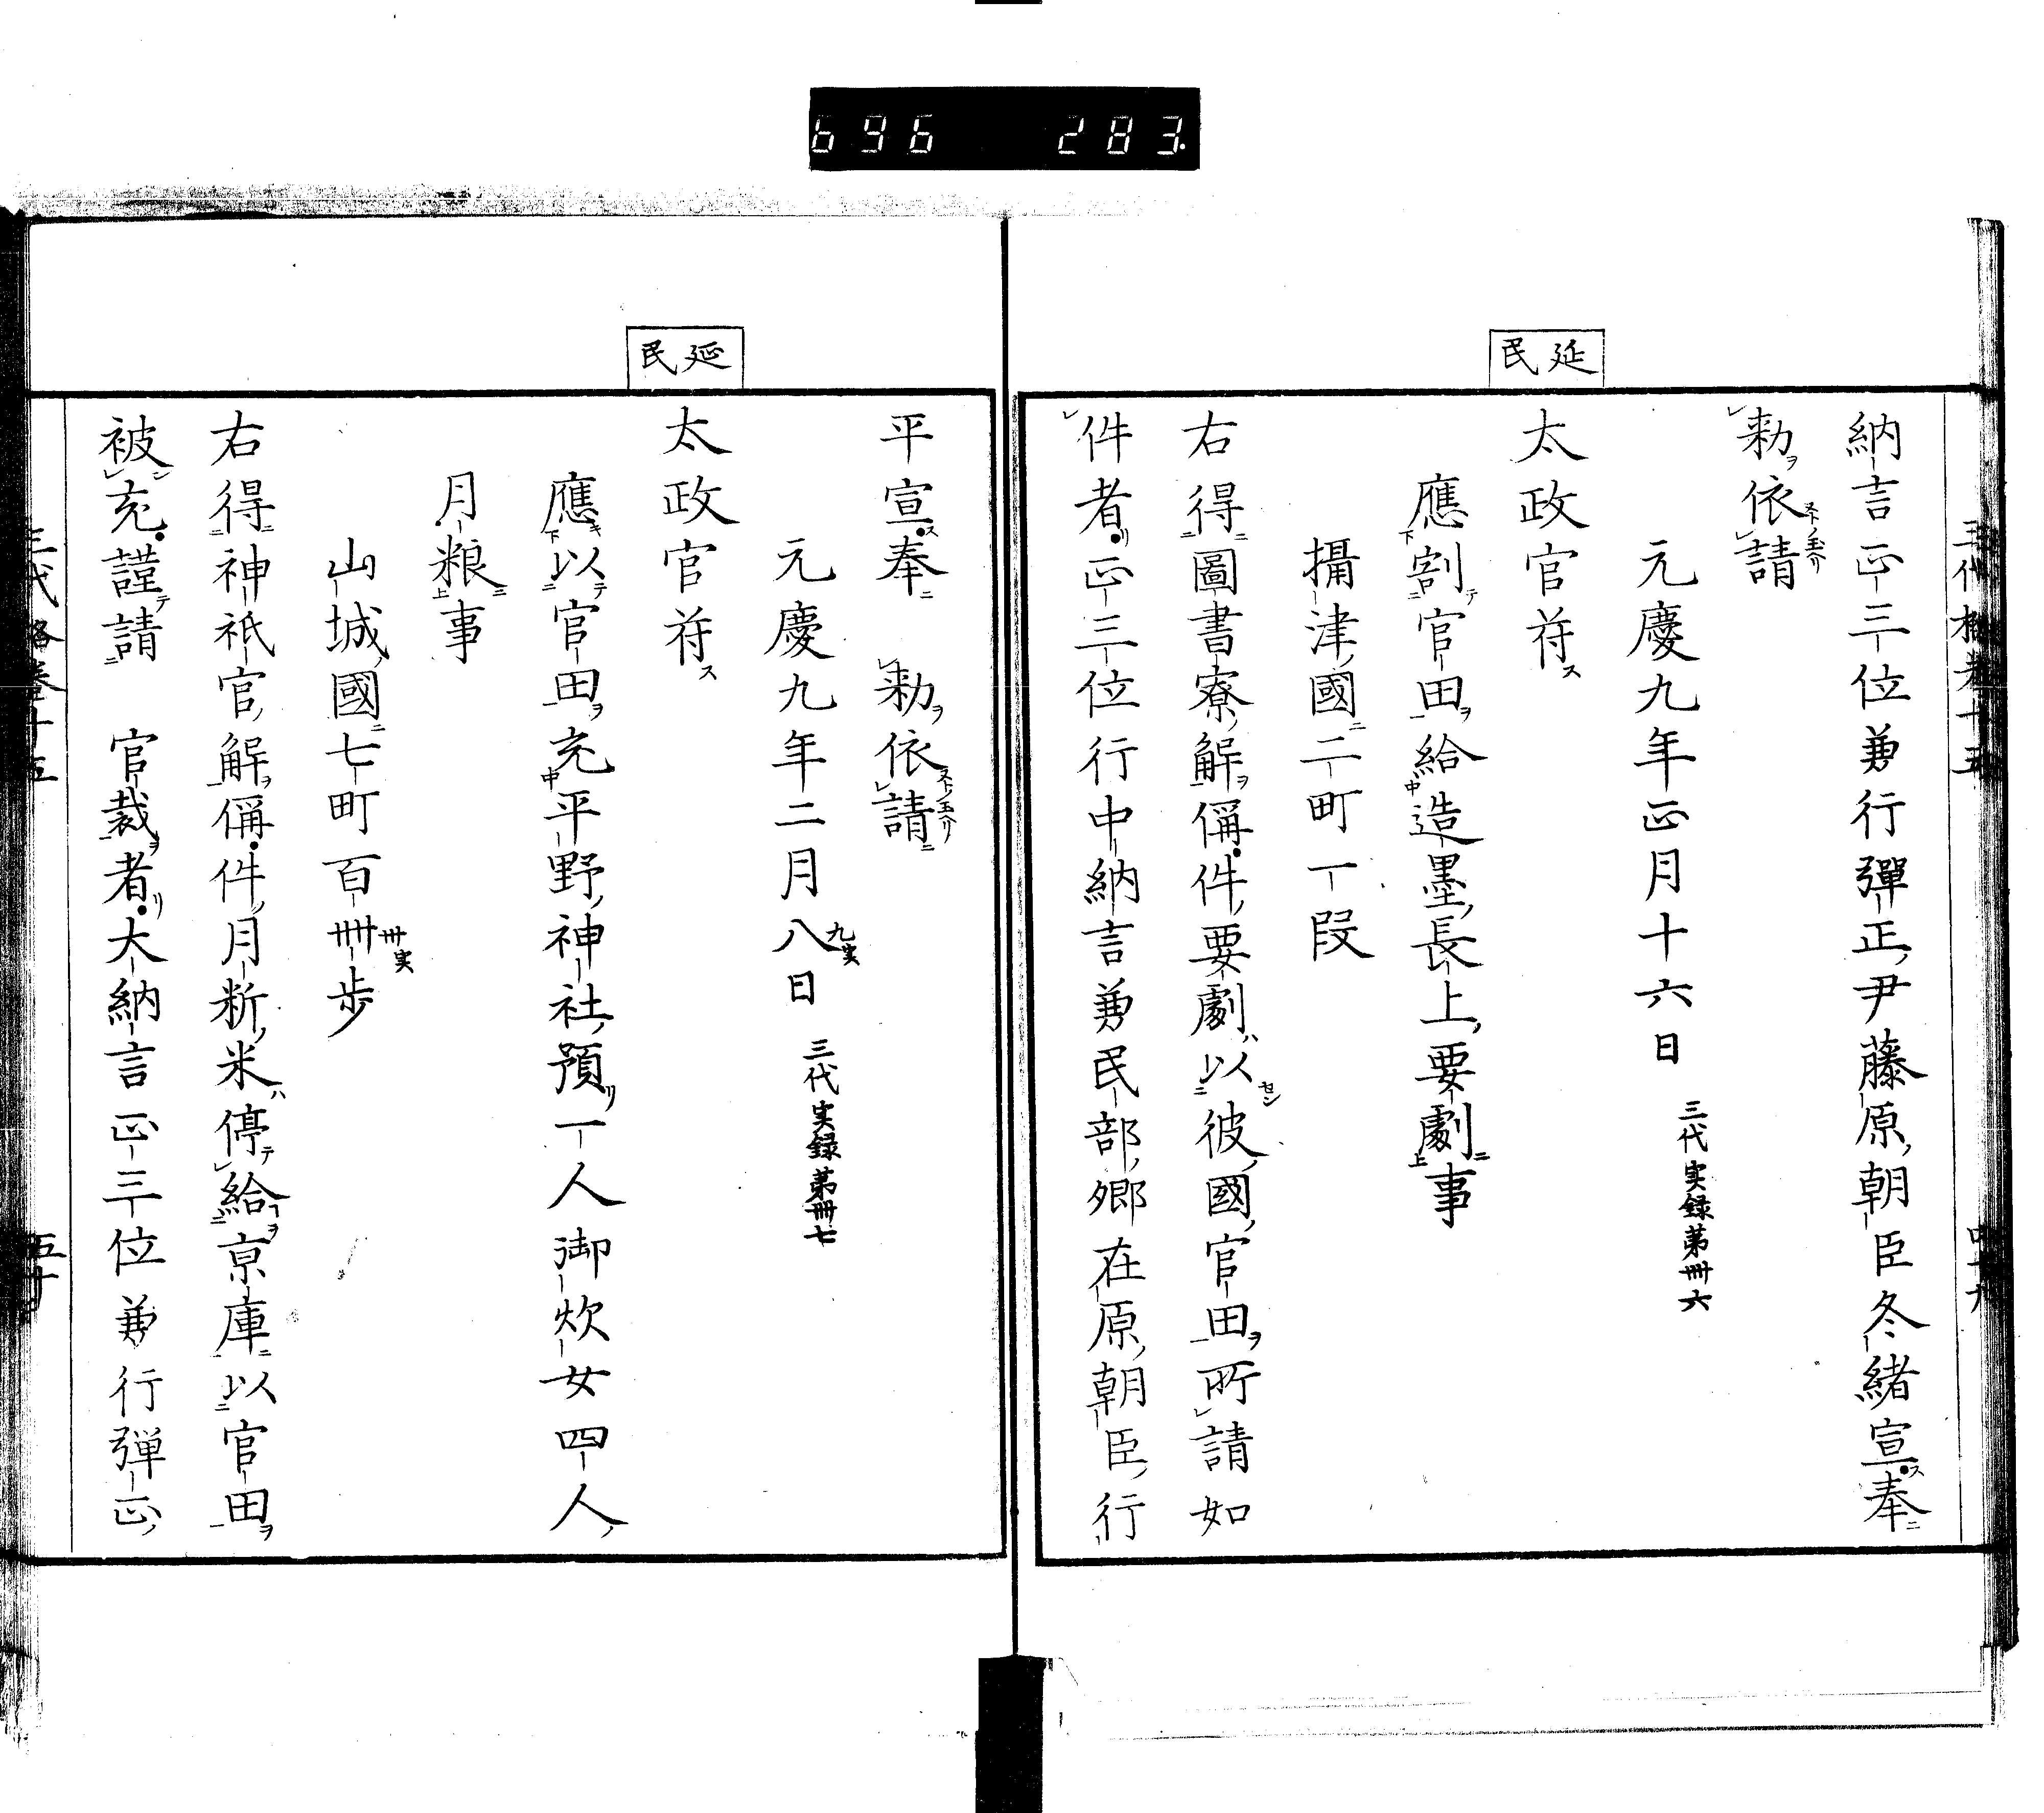 696 283
三代格卷十五
四十九
延民
納言正三位兼行彈正尹藤原朝臣冬緒宣奉
勅依請
元慶九年正月十六日 三代実録第卌六
太政官符
應割官田給造墨長上要劇事
攝津國二町一段
右得圖書寮解偁件要劇以彼國官田所請如
件者正三位行中納言兼民部卿在原朝臣行
平宣奉 勅依請
元慶九年二月八日 九実 三代実録第卌七
延民
太政官符
應以官田充平野神社預一人御炊女四人
月粮事
山城國七町百卌歩 卅実
右得神祇官解偁件月料米停給京庫以官田
被充謹請 官裁者大納言正三位兼行弾正
三代格卷十五
五十